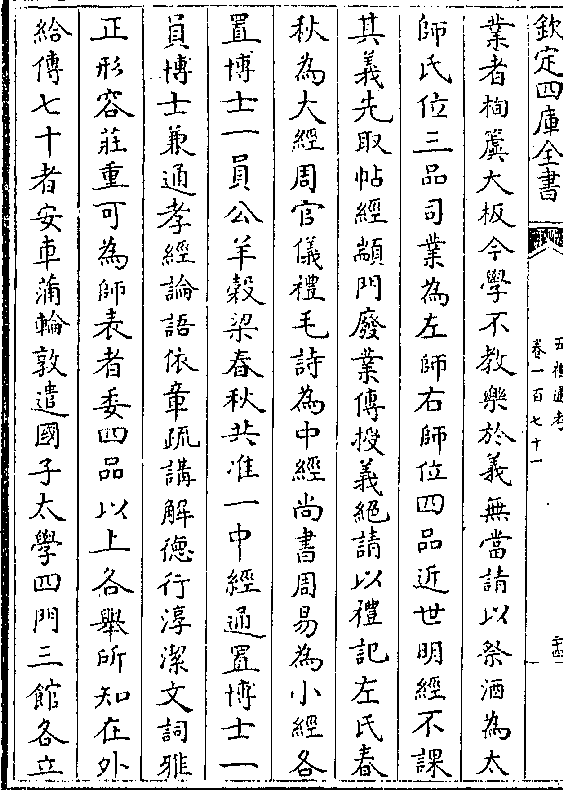 欽定四庫全書
五禮通考
卷一百七十一
二十四
業者栒簴大板今學不教樂於義無當請以祭酒為太
師氏位三品司業為左師右師位四品近世明經不課
其義先取帖經顓門廢業傳授義絕請以禮記左氏春
秋為大經周官儀禮毛詩為中經尚書周易為小經各
置博士一員公羊穀梁春秋共准一中經通置博士一
員博士兼通孝經論語依章疏講解德行淳潔文詞雅
正形容莊重可為師表者委四品以上各舉所知在外
給傳七十者安車蒲輪敦遣國子太學四門三館各立